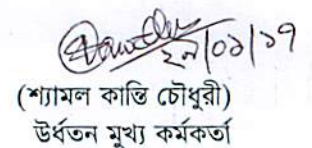 ২৯/০১/১৭
(শ্যামল কান্তি চৌধুরী)
উর্ধতন মুখ্য কর্মকর্তা